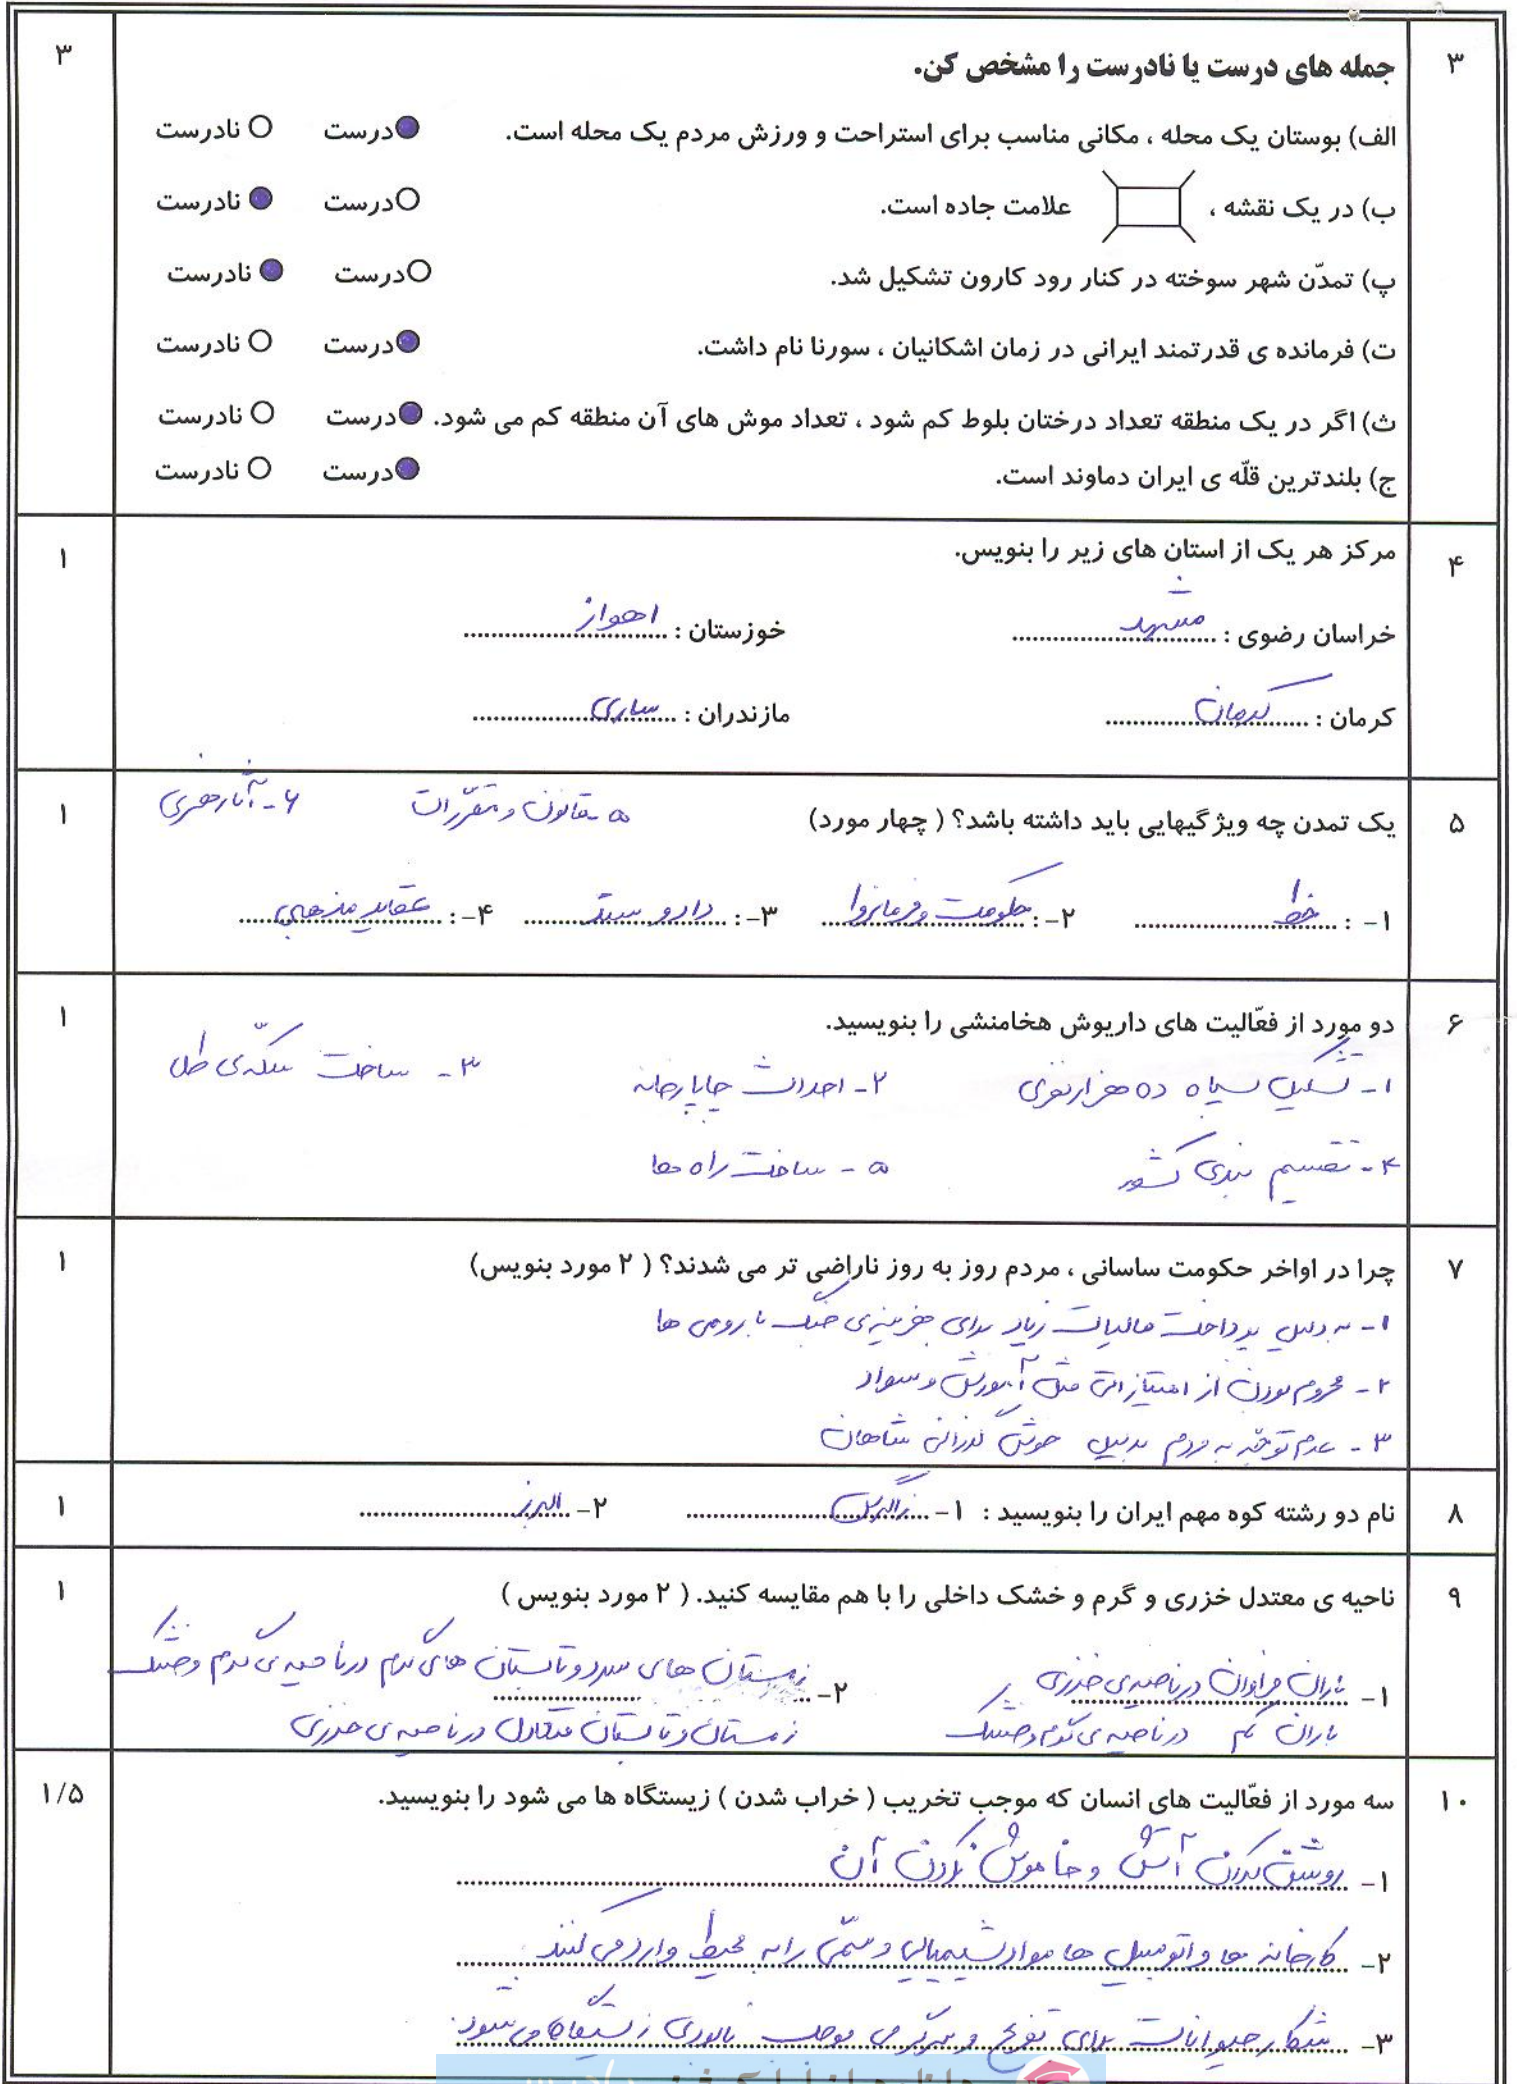 ۳ جمله های درست یا نادرست را مشخص کن. ۳
الف) بوستان یک محله ، مکانی مناسب برای استراحت و ورزش مردم یک محله است. درست نادرست
ب) در یک نقشه ، علامت جاده است. درست نادرست
پ) تمدّن شهر سوخته در کنار رود کارون تشکیل شد. درست نادرست
ت) فرمانده ی قدرتمند ایرانی در زمان اشکانیان ، سورنا نام داشت. درست نادرست
ث) اگر در یک منطقه تعداد درختان بلوط کم شود ، تعداد موش های آن منطقه کم می شود. درست نادرست
ج) بلندترین قلّه ی ایران دماوند است. درست نادرست
۴ مرکز هر یک از استان های زیر را بنویس. ۱
خراسان رضوی : مشهد خوزستان : اهواز
کرمان : کرمان مازندران : ساری
۵ یک تمدن چه ویژگیهایی باید داشته باشد؟ ( چهار مورد) ۵- قانون و مقرّرات ۶- آثار هنری ۱
۱- : خط ۲- : حکومت و فرمانروا ۳- : داد و ستد ۴- : عقاید مذهبی
۶ دو مورد از فعّالیت های داریوش هخامنشی را بنویسید. ۱
۱- تشکیل سپاه ده هزار نفری ۲- احداث چاپارخانه ۳- ساخت سکّه ی طلا
۴- تقسیم بندی کشور ۵- ساخت راه ها
۷ چرا در اواخر حکومت ساسانی ، مردم روز به روز ناراضی تر می شدند؟ ( ۲ مورد بنویس) ۱
۱- به دلیل پرداخت مالیات زیاد برای هزینه ی جنگ با رومی ها
۲- محروم بودن از امتیازاتی مثل آموزش و سواد
۳- عدم توجّه به مردم بدلیل خوش گذرانی شاهان
۸ نام دو رشته کوه مهم ایران را بنویسید : ۱- زاگرس ۲- البرز ۱
۹ ناحیه ی معتدل خزری و گرم و خشک داخلی را با هم مقایسه کنید. ( ۲ مورد بنویس ) ۱
۱- باران فراوان در ناحیه ی خزری ۲- زمستان های سرد و تابستان های گرم در ناحیه ی گرم و خشک
باران کم در ناحیه ی گرم و خشک زمستان و تابستان متعادل در ناحیه ی خزری
۱۰ سه مورد از فعّالیت های انسان که موجب تخریب ( خراب شدن ) زیستگاه ها می شود را بنویسید. ۱/۵
۱- روشن کردن آتش و خاموش نکردن آن
۲- کارخانه ها و اتومبیل ها مواد شیمیایی و سمّی را به محیط وارد می کنند.
۳- شکار حیوانات برای تفریح و سرگرمی موجب نابودی زیستگاه می شود.